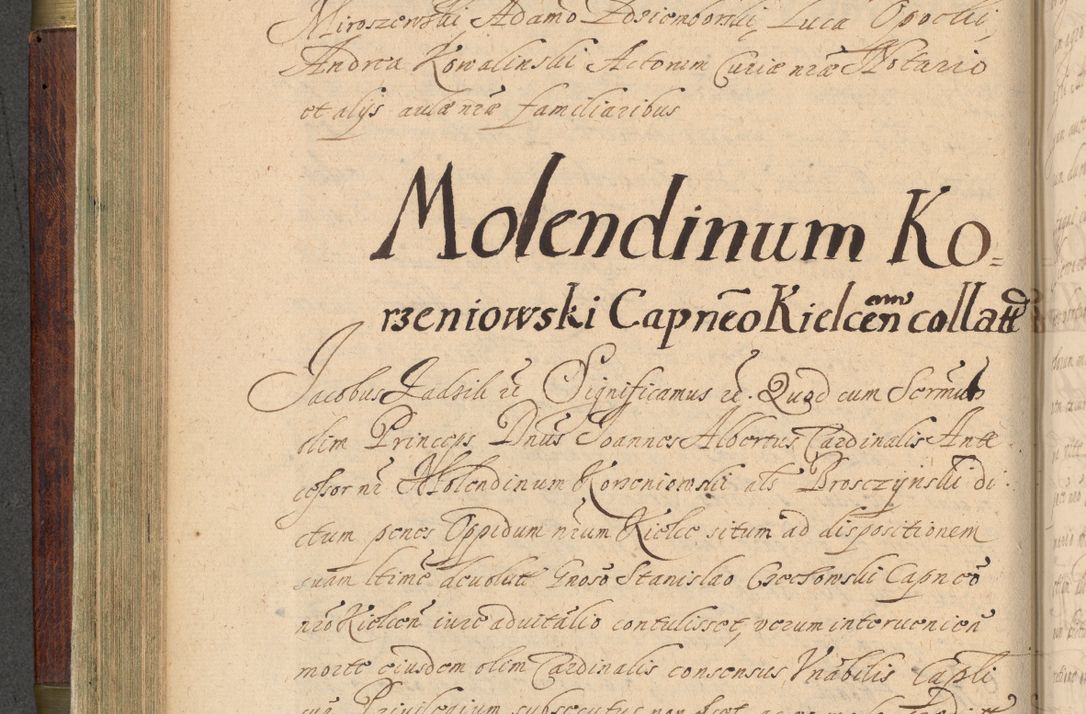 Miroszewski Adamo Zdziembowski, Luca Opocki,
Andrea Kowalinski Actorum Curiæ nræ Notario
et alijs aulæ nræ familiaribus
Molendinum Ko=
rzeniowski Capneo Kielcen collatt
Jacobus Zadzik &c Significamus &c. Quod cum Sermus
olim Princeps Dnus Joannes Albertus Cardinalis Ante
cessor nr Molendinum Korzeniowski als Brosczynski di
ctum penes Oppidum nrum Kielce situm ad dispositionem
suam ltime deuolutt Gnoso Stanislao Czechowski Capneo
nro Kielcen iure aduitalio contulisset, verum interuenien
morte eiusdem olim Cardinalis consensus Vnabilis Capli
Priuilegium subsecutus non